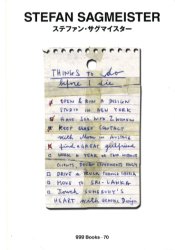 STEFAN SAGMEISTER
ステファン・サグマイスター
THINGS to do
before I die
OPEN & RUN A DESIGN
STUDIO IN NEW YORK
HAVE SEX WITH 2 WOMEN
KEEP CLOSE CONTACT
with Mom in Austria
find a GREAT girlfriend
WORK A YEAR
DRIVE A TRUCK
MOVE to SRI-LANKA
Touch SOMEBODY'S
HEART with GRAPHIC Design
ggg Books - 70